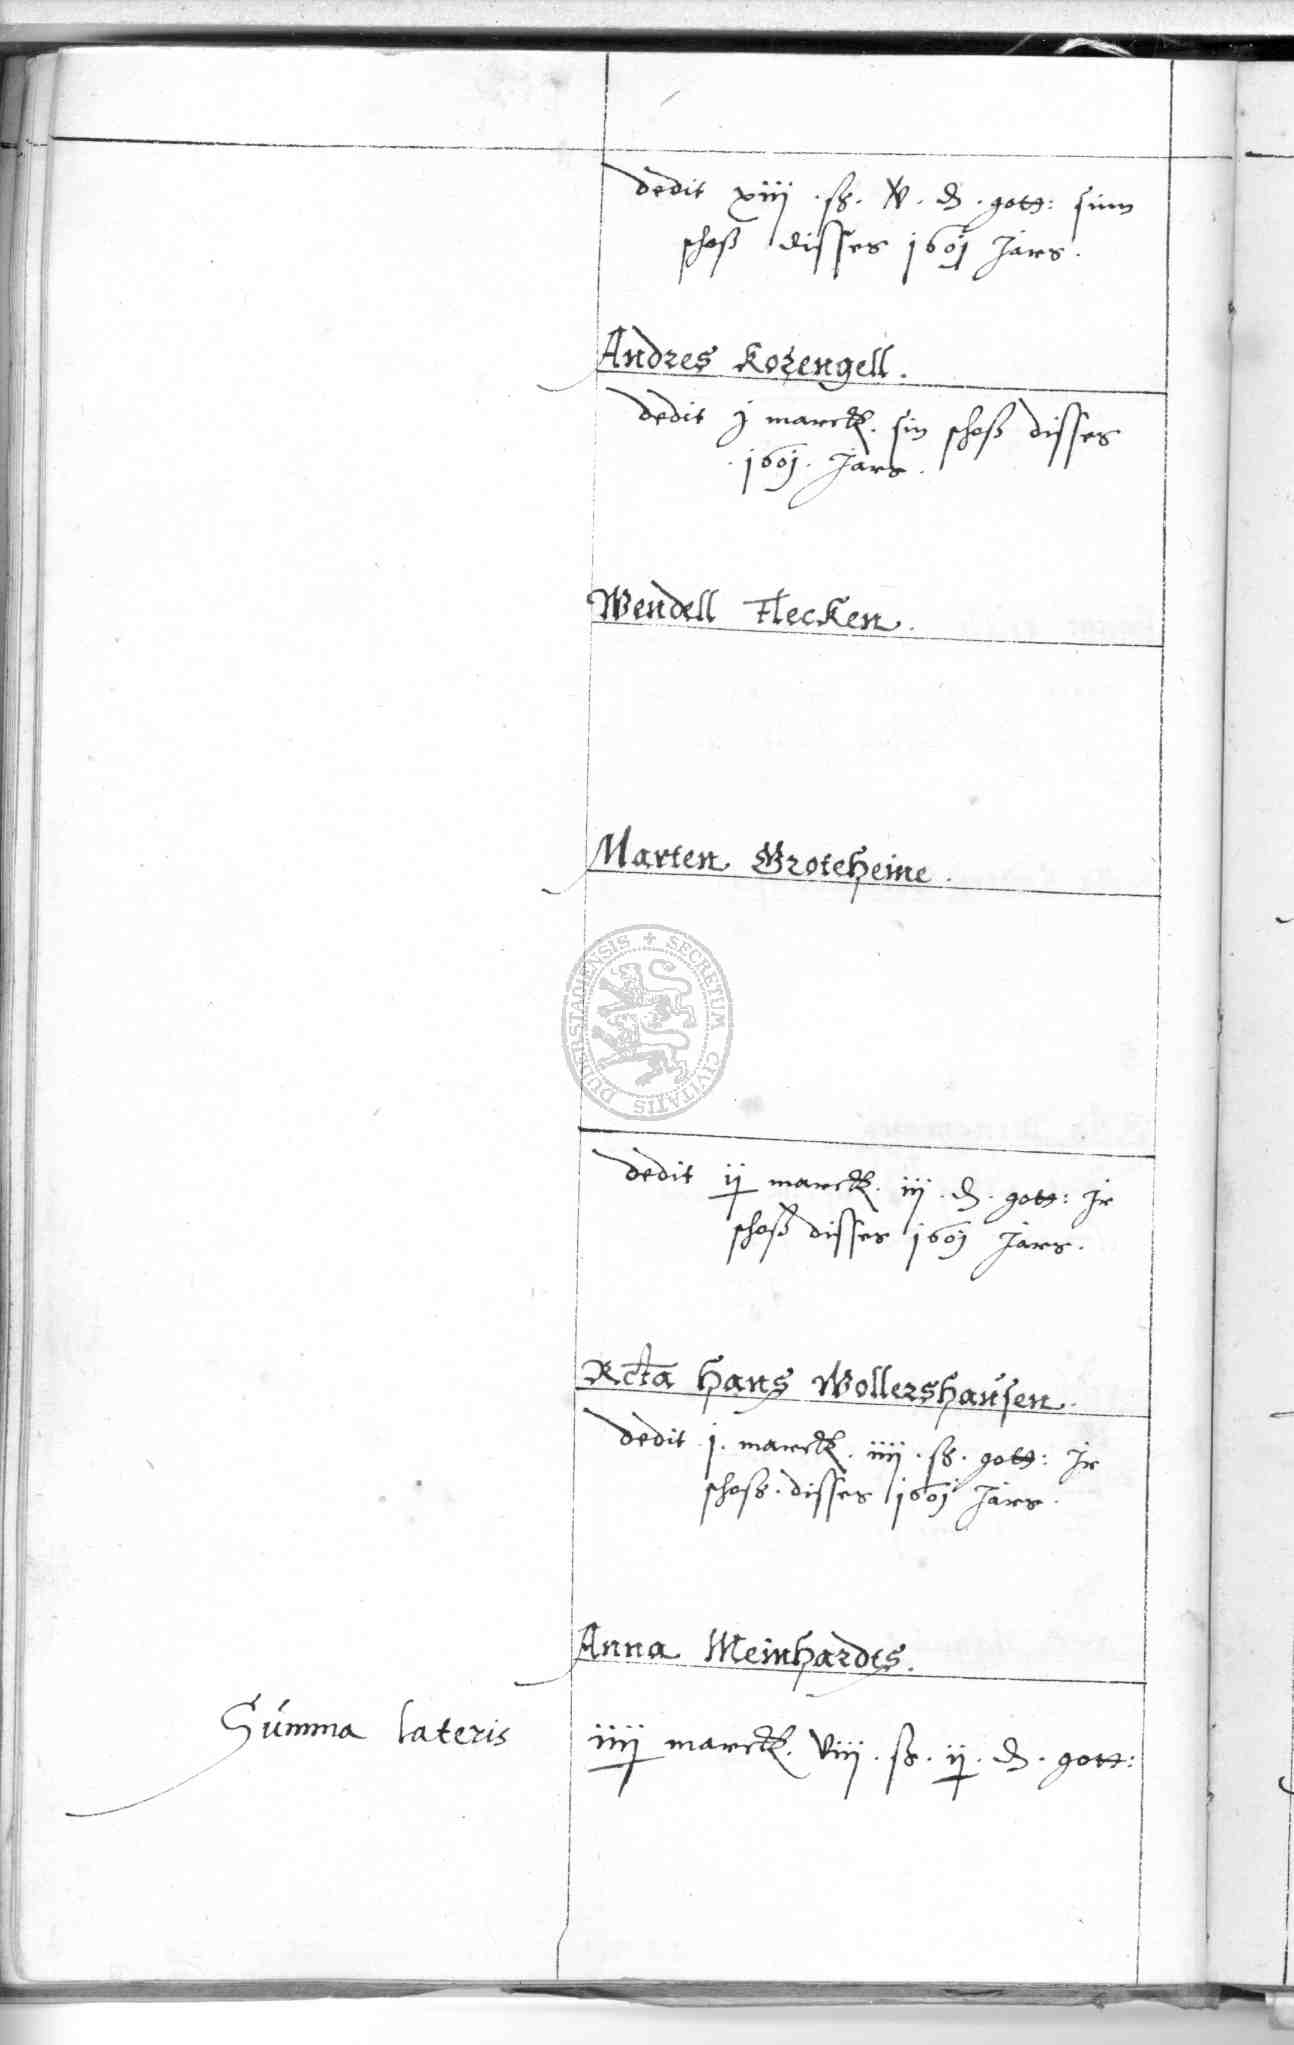 dedit xiiij . ß . V . ₰ . gott: sinn
schoß disses 1601 Jars .
Andres Kozengell .
dedit j marck . sin schoß disses
. 1601 . Jars .
Wendell Flecken .
Marten Groteheine .
SECRETUM CIVITATIS DUDERSTADIENSIS +
dedit ij marck . iij . ₰ . gott: Jr
schoß disses 1601 Jars .
Rcta Hans Wollershaúsen .
dedit . j . marck . iiij . ß . gott: Jr
schoß . disses 1601 Jars .
Anna Meinhardes .
Súmma lateris iiij marck . viij . ß . ij . ₰ . gott: